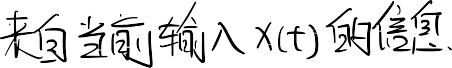 来自当前输入x(t)的信息.